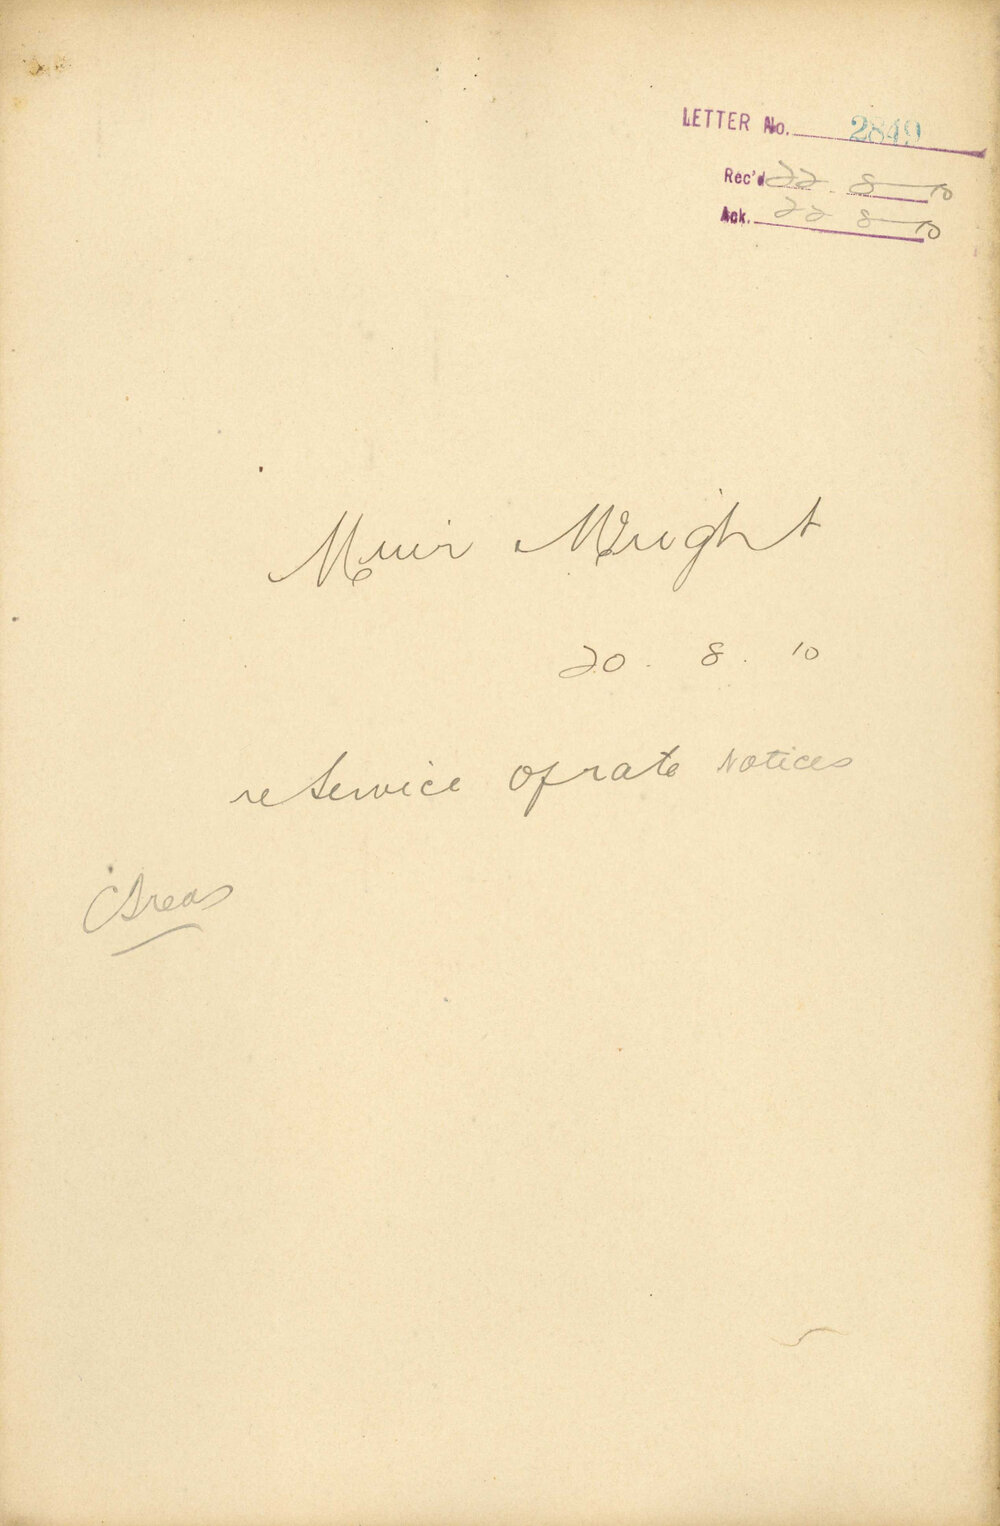 LETTER No. 2849
Rec'd 22 8 10
Ack. 22 8 10
Muir Wright
20. 8. 10
re Service of rate Notices